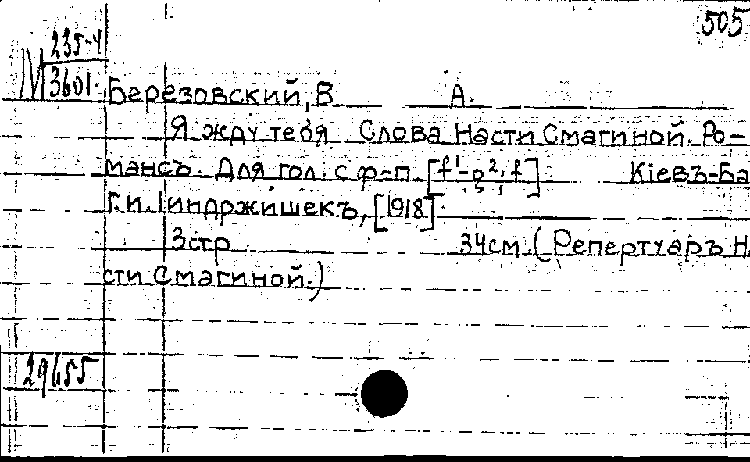 505
М 235-4
3601.
Березовский, В А.
Я жду тебя Слова Насти Смагиной. Ро-
мансъ. Для гол. с ф-п. [f¹-g², f] Кіевъ-Ба
Г. и. Индржишекъ, [1918].
3 стр 34 см. (Репертуаръ На
сти Смагиной.)
29655